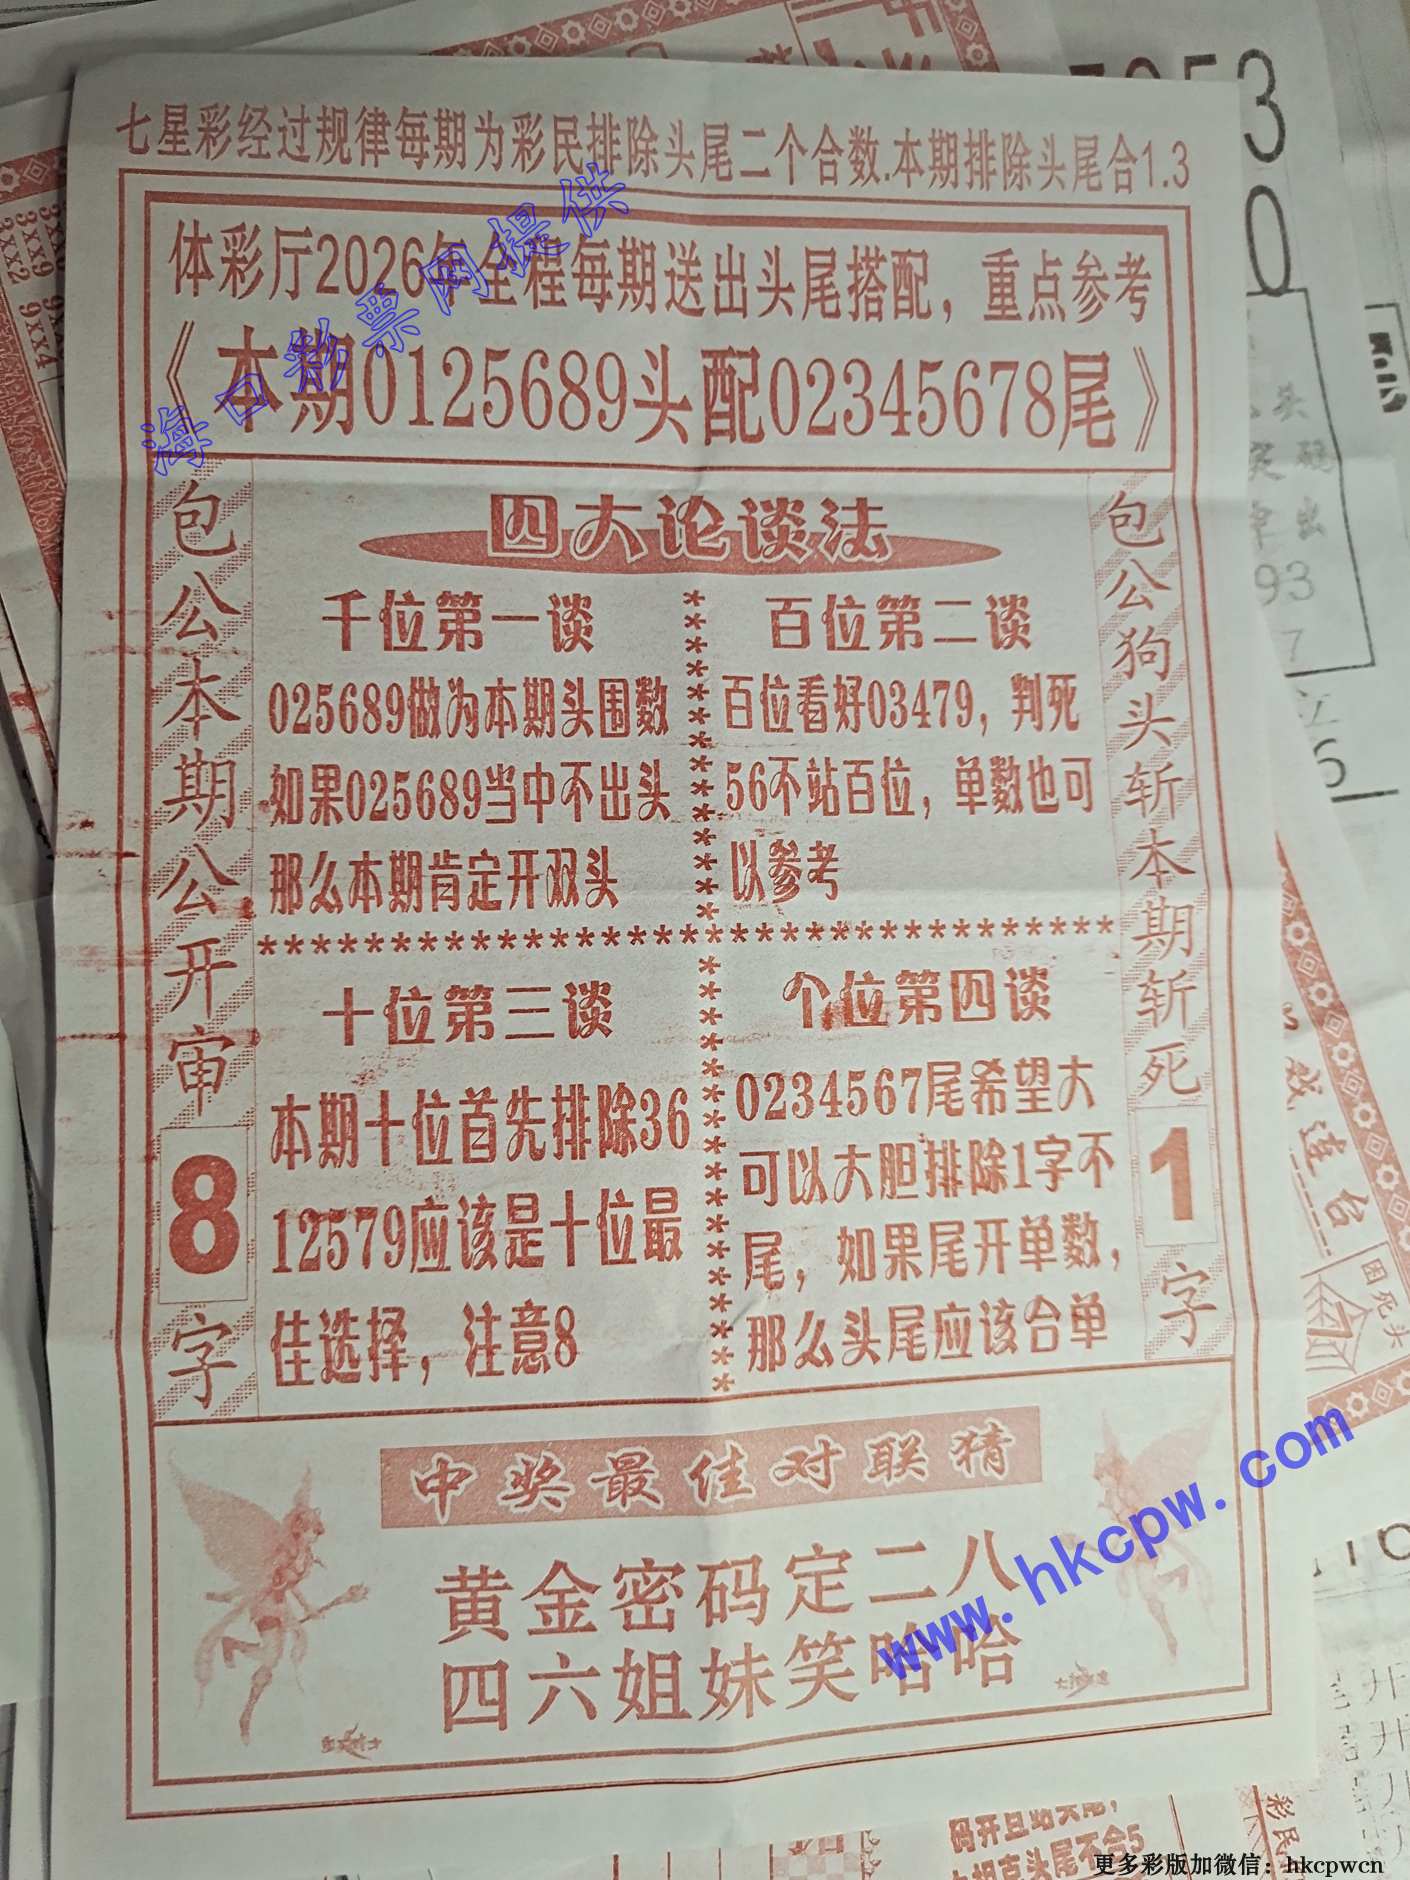 七星彩经过规律每期为彩民排除头尾二个合数.本期排除头尾合1.3
体彩厅2026年全程每期送出头尾搭配，重点参考
《本期0125689头配02345678尾》
海口彩票网提供
包公本期公开审8字
四大论谈法
千位第一谈
025689做为本期头围数
如果025689当中不出头
那么本期肯定开双头
百位第二谈
百位看好03479，判死
56不站百位，单数也可
以参考
十位第三谈
本期十位首先排除36
12579应该是十位最
佳选择，注意8
个位第四谈
0234567尾希望大
可以大胆排除1字不
尾，如果尾开单数，
那么头尾应该合单
包公狗头斩本期斩死1字
中奖最佳对联猜
黄金密码定二八
四六姐妹笑哈哈
www.hkcpw.com
3xx9
3xx2
9xx4
93
7
困死头
彩民
码开且站头尾，
头尾不合5
更多彩版加微信：hkcpwcn